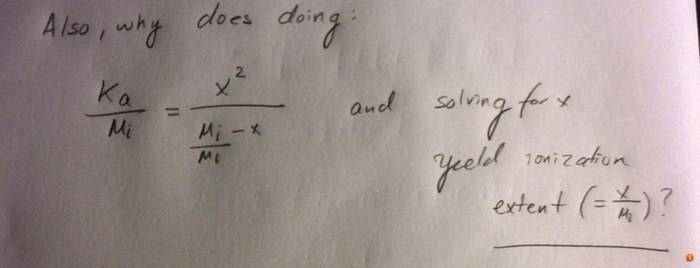 Also, why does doing:
Ka/Mi = x²/(Mi/Mi - x) and solving for x
yield ionization
extent (= x/Mi)?